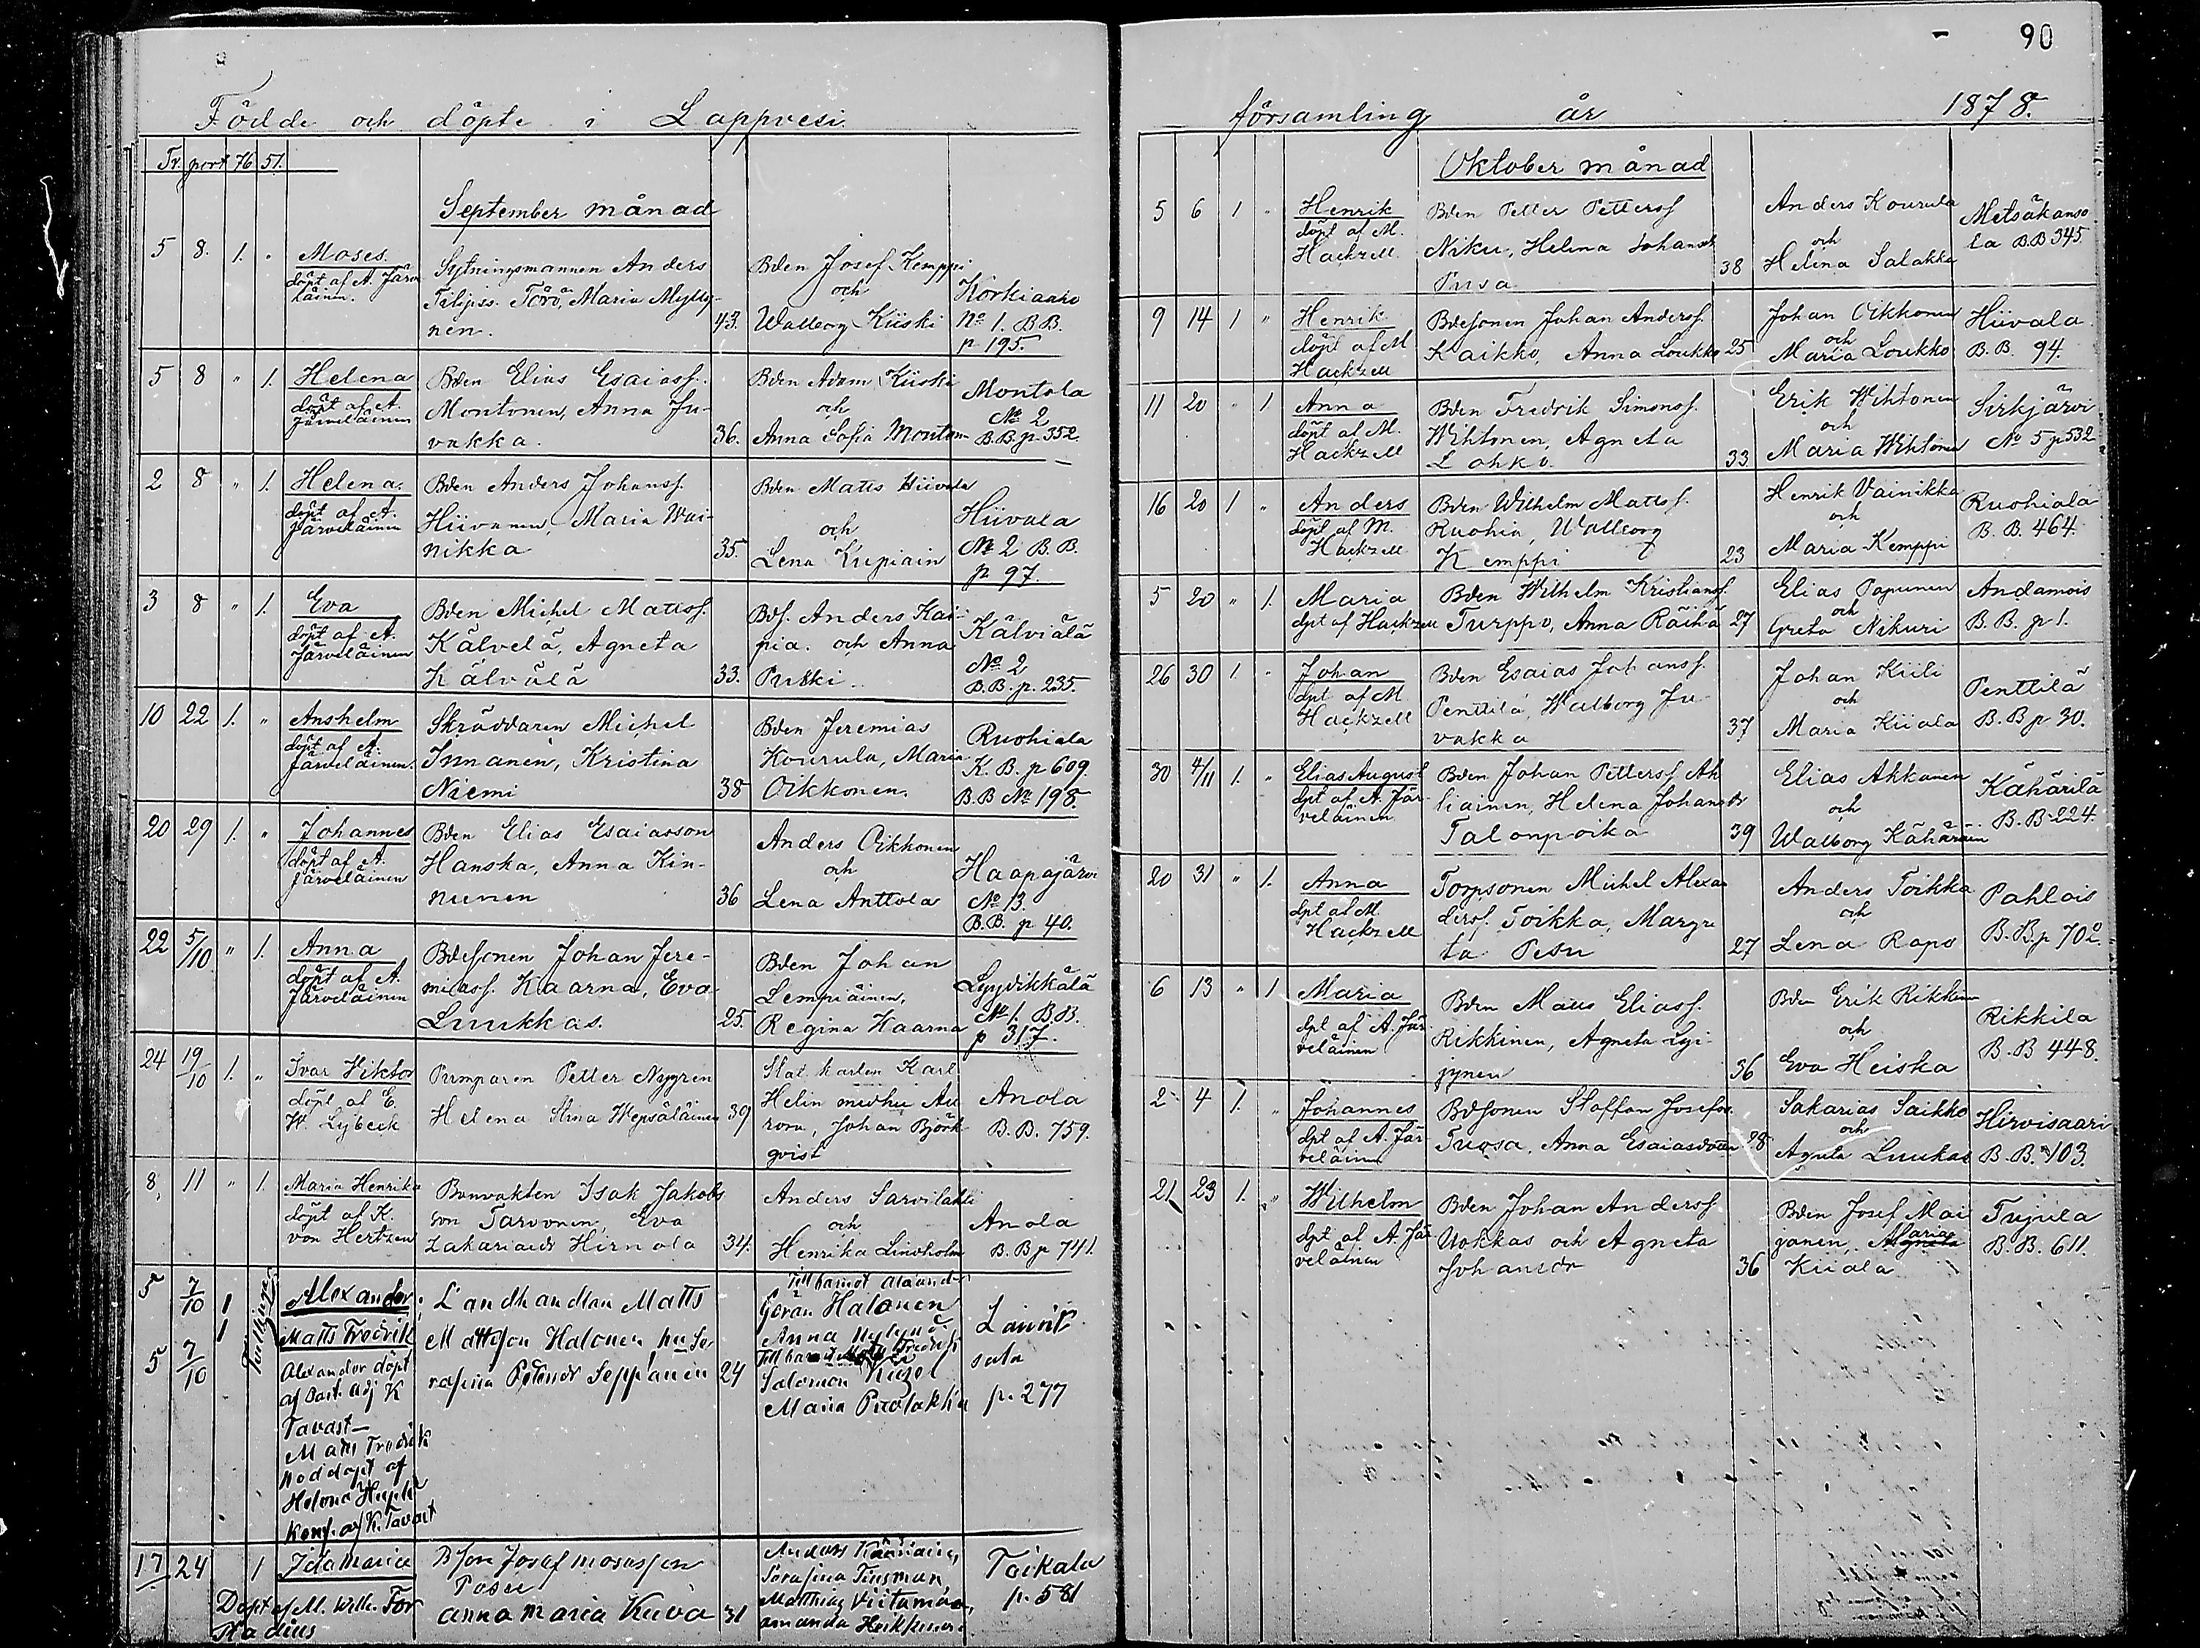 90
Födde och döpte i Lappvesi
församling år 1878.
Tr. port 76 51.
September månad
5 8. 1. " Moses. döpt af A. Järve läinen.
Sytningsmannen Anders Filipss. Törö, Maria Mylly- nen. 43.
Bden Josef Kemppi och Walborg Kiiski
Korkiaaho No 1. B.B. p 195.
5 8 " 1. Helena döpt af A. Järveläinen
Bden Elias Esaiass. Montonen, Anna Ju- vakka. 36.
Bden Adam Kiiski och Anna Sofia Monton
Montola No 2 B.B. p. 352
2 8 " 1. Helena. döpt af A. Järveläinen
Bden Anders Johanss. Hiivanen, Maria Wai- nikka 35.
Bden Matts Hiivala och Lena Kupiain
Hiivala No 2 B.B. p 97.
3 8 " 1. Eva döpt af A. Järveläinen
Bden Michel Mattss. Kälvelä, Agneta Kälvälä 33.
Bds. Anders Kai- pia. och Anna Purki
Kälviälä No 2 B.B. p. 235.
10 22 1. " Anshelm döpt af A. Järveläinen.
Skräddaren Michel Immanen, Kristina Niemi 38
Bden Jeremias Kourula, Maria Oikkonen.
Ruohiala K. B. p 609 B.B No 198.
20 29 1. " Johannes döpt af A. Järveläinen
Bden Elias Esaiasson Hanska, Anna Kin- nunen 36
Anders Oikkonen och Lena Anttola
Haapajärvi No 13. B.B. p 40.
22 5/10 " 1. Anna döpt af A. Järveläinen
Bdesonen Johan Jere- miass. Kaarna, Eva Luukkas. 25.
Bden Johan Lempiäinen, Regina Kaarna
Lyydikkälä No 1. B.B. p 317.
24 19/10 1. " Ivar Viktor döpt af E W. Lybeck
Pumparen Petter Nygren Helena Stina Wepsäläinen 39
Stat karlen Karl Helin medhu Au rora, Johan Björk qvist
Anola B.B. 759.
8, 11 " 1. Maria Henrika döpt af K. von Hertzen
Banvakten Isak Jakobs son Tarvonen, Eva Zakariasdr Hirvola 34.
Anders Sarvilahti och Henrika Lindholm
Anola B.B p 741.
5 7/10 1 Tvillingar Alexander,
5 7/10 1 Matts Fredrik
Alexander döpt af Past. Adj K Tavast— Matts Fredrik nöddöpt af Helena Konf. af K. Tavast
Landhandlan Matts Mattsson Halonen hu Se- rafina Petersdr Seppänen 24
Till barnet Alexand Göran Halonen Anna Nylund Salomon Maria Puolakka
Lauritsala p. 277
17 24 1 Ida Maria
Döpt af M. Wilh. For stadius
Bson Josef Mosesson Posse Anna Maria Kuva 31
Anders Serafina Tiusman Matthias Viitamäe, Amanda Heikkinen
Toikala p. 581
Oktober månad
5 6 1 " Henrik döpt af M. Hackzell
Bden Petter Petterss Niku, Helena Johansdr Pusa 38
Anders Kourula och Helena Salakka
Metsäkanso la B.B 345
9 14 1 " Henrik döpt af M Hackzell
Bdesonen Johan Anderss. Kaikko, Anna Loukko 25
Johan Oikkonen och Maria Loukko
Hiivala. B.B. 94.
11 20 " 1 Anna döpt af M. Hackzell
Bden Fredrik Simonss. Wihtonen, Agneta Lohko. 33
Erik Wihtonen och Maria Wihtonen
Sirkjärvi No 5 p 532
16 20 1 " Anders döpt af M. Hackzell
Bden Wilhelm Mattss. Ruohia, Walborg Kemppi 23
Henrik Vainikka och Maria Kemppi
Ruohiala B. B. 464.
5 20 " 1. Maria dpt af Hackzell
Bden Wilhelm Kristianss. Turppo, Anna Räihä 27
Elias Popunen och Greta Nikuri
Andamois B. B. p 1.
26 30 1. " Johan dpt af M Hackzell
Bden Esaias Johanss. Penttilä, Walborg Ju vakka 37
Johan Kiili och Maria Kiiala
Penttilä B. B p 30.
30 4/11 1. " Elias August dpt af A. Jär- veläinen
Bden Johan Petterss Ah liainen, Helena Johansdr Talonpoika 39
Elias Akkanen och Walborg Kähärinen
Kähärilä B. B 224
20 31 " 1. Anna dpt af M. Hackzell
Torpsonen Michel Alexan derss. Toikka, Margre ta Pesu 27
Anders Toikka och Lena Rapo
Pahlois B. B. p 702
6 13 " 1 Maria dpt af A. Jär- veläinen
Bden Matts Eliass. Rikkinen, Agneta Lyi- jynen 36
Bden Erik Rikkinen och Eva Heiska
Rikkila B. B 448.
2 4 1. " Johannes dpt af A. Jär veläinen
Bdsonen Staffan Josefss. Tuosa, Anna Esaiasdotter 28
Sakarias Saikko och Agneta Luukas
Hirvisaari B. B. 103.
21 23 1. " Wilhelm dpt af A. Jär veläinen
Bden Johan Anderss Uokkas och Agneta Johansdr 36
Bden Josef Mai gonen, Maria Kiiala
Tujula B. B. 611.